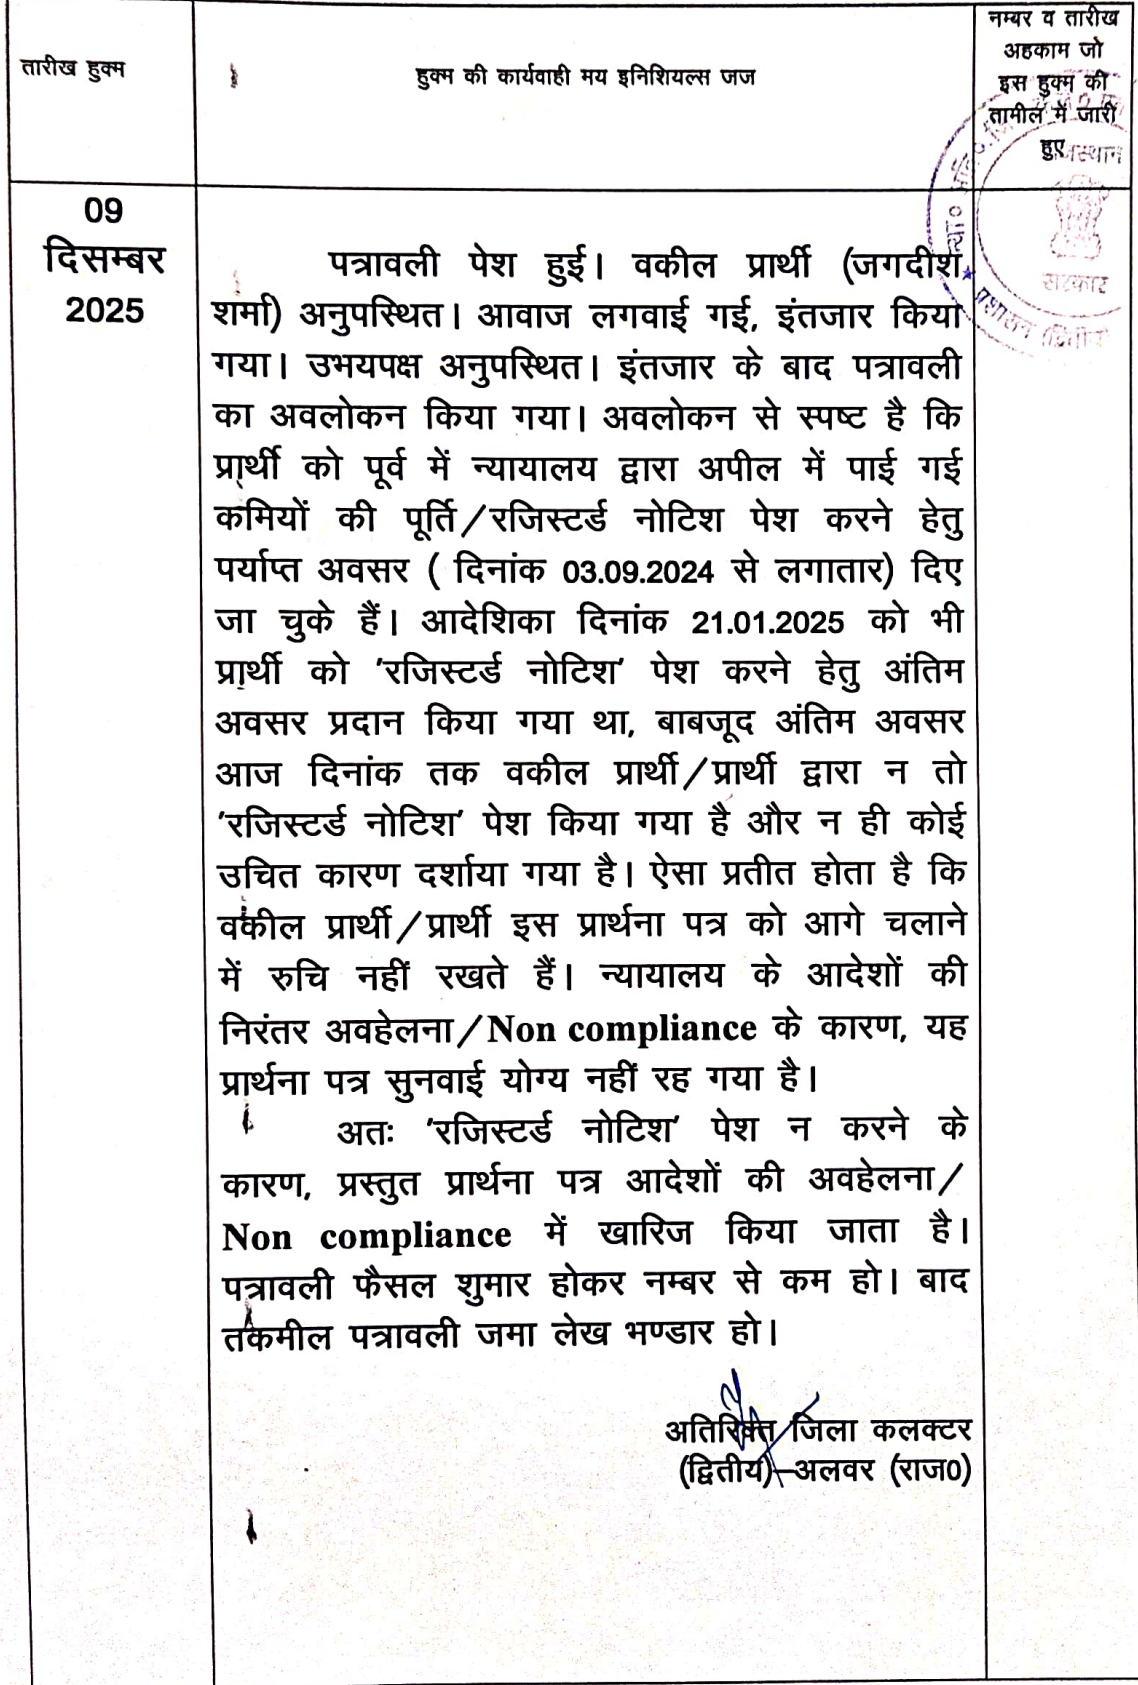 तारीख हुक्म
हुक्म की कार्यवाही मय इनिशियल्स जज
नम्बर व तारीख
अहकाम जो
इस हुक्म की
तामील में जारी
हुए
09
दिसम्बर
2025
पत्रावली पेश हुई। वकील प्रार्थी (जगदीश
शर्मा) अनुपस्थित। आवाज लगवाई गई, इंतजार किया
गया। उभयपक्ष अनुपस्थित। इंतजार के बाद पत्रावली
का अवलोकन किया गया। अवलोकन से स्पष्ट है कि
प्रार्थी को पूर्व में न्यायालय द्वारा अपील में पाई गई
कमियों की पूर्ति/रजिस्टर्ड नोटिश पेश करने हेतु
पर्याप्त अवसर ( दिनांक 03.09.2024 से लगातार) दिए
जा चुके हैं। आदेशिका दिनांक 21.01.2025 को भी
प्रार्थी को 'रजिस्टर्ड नोटिश' पेश करने हेतु अंतिम
अवसर प्रदान किया गया था, बाबजूद अंतिम अवसर
आज दिनांक तक वकील प्रार्थी/प्रार्थी द्वारा न तो
'रजिस्टर्ड नोटिश' पेश किया गया है और न ही कोई
उचित कारण दर्शाया गया है। ऐसा प्रतीत होता है कि
वकील प्रार्थी/प्रार्थी इस प्रार्थना पत्र को आगे चलाने
में रुचि नहीं रखते हैं। न्यायालय के आदेशों की
निरंतर अवहेलना/Non compliance के कारण, यह
प्रार्थना पत्र सुनवाई योग्य नहीं रह गया है।
अतः 'रजिस्टर्ड नोटिश' पेश न करने के
कारण, प्रस्तुत प्रार्थना पत्र आदेशों की अवहेलना/
Non compliance में खारिज किया जाता है।
पत्रावली फैसल शुमार होकर नम्बर से कम हो। बाद
तकमील पत्रावली जमा लेख भण्डार हो।
अतिरिक्त जिला कलक्टर
(द्वितीय)–अलवर (राज0)
सरकार
प्रशासन (द्वितीय